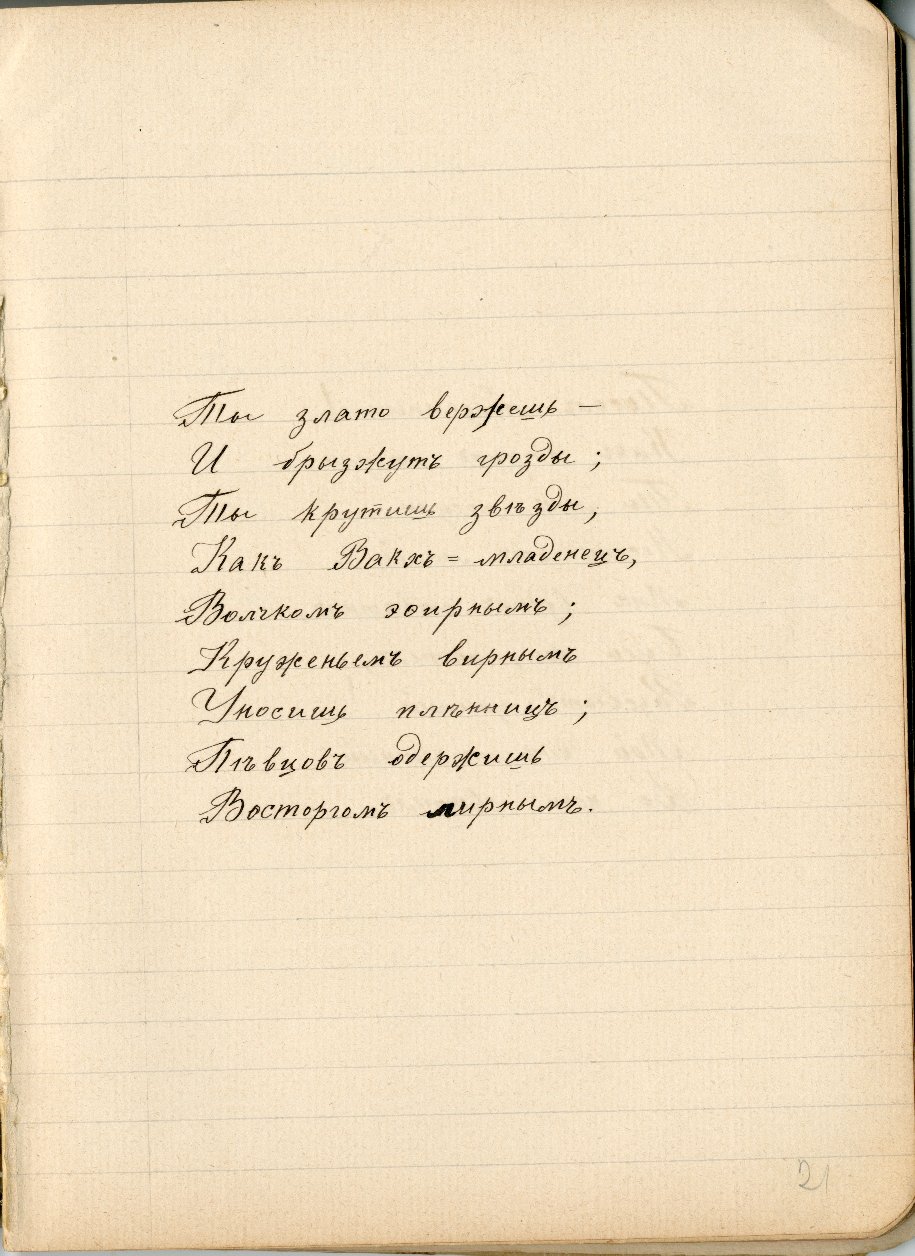 Ты злато вержешь —
И брызжутъ грозды;
Ты крутишь звѣзды,
Какъ Вакхъ = младенецъ,
Волчкомъ эѳирнымъ;
Круженьемъ вирнымъ
Уносишь плѣнницъ;
Пѣвцовъ одержишь
Восторгомъ лирнымъ.
21